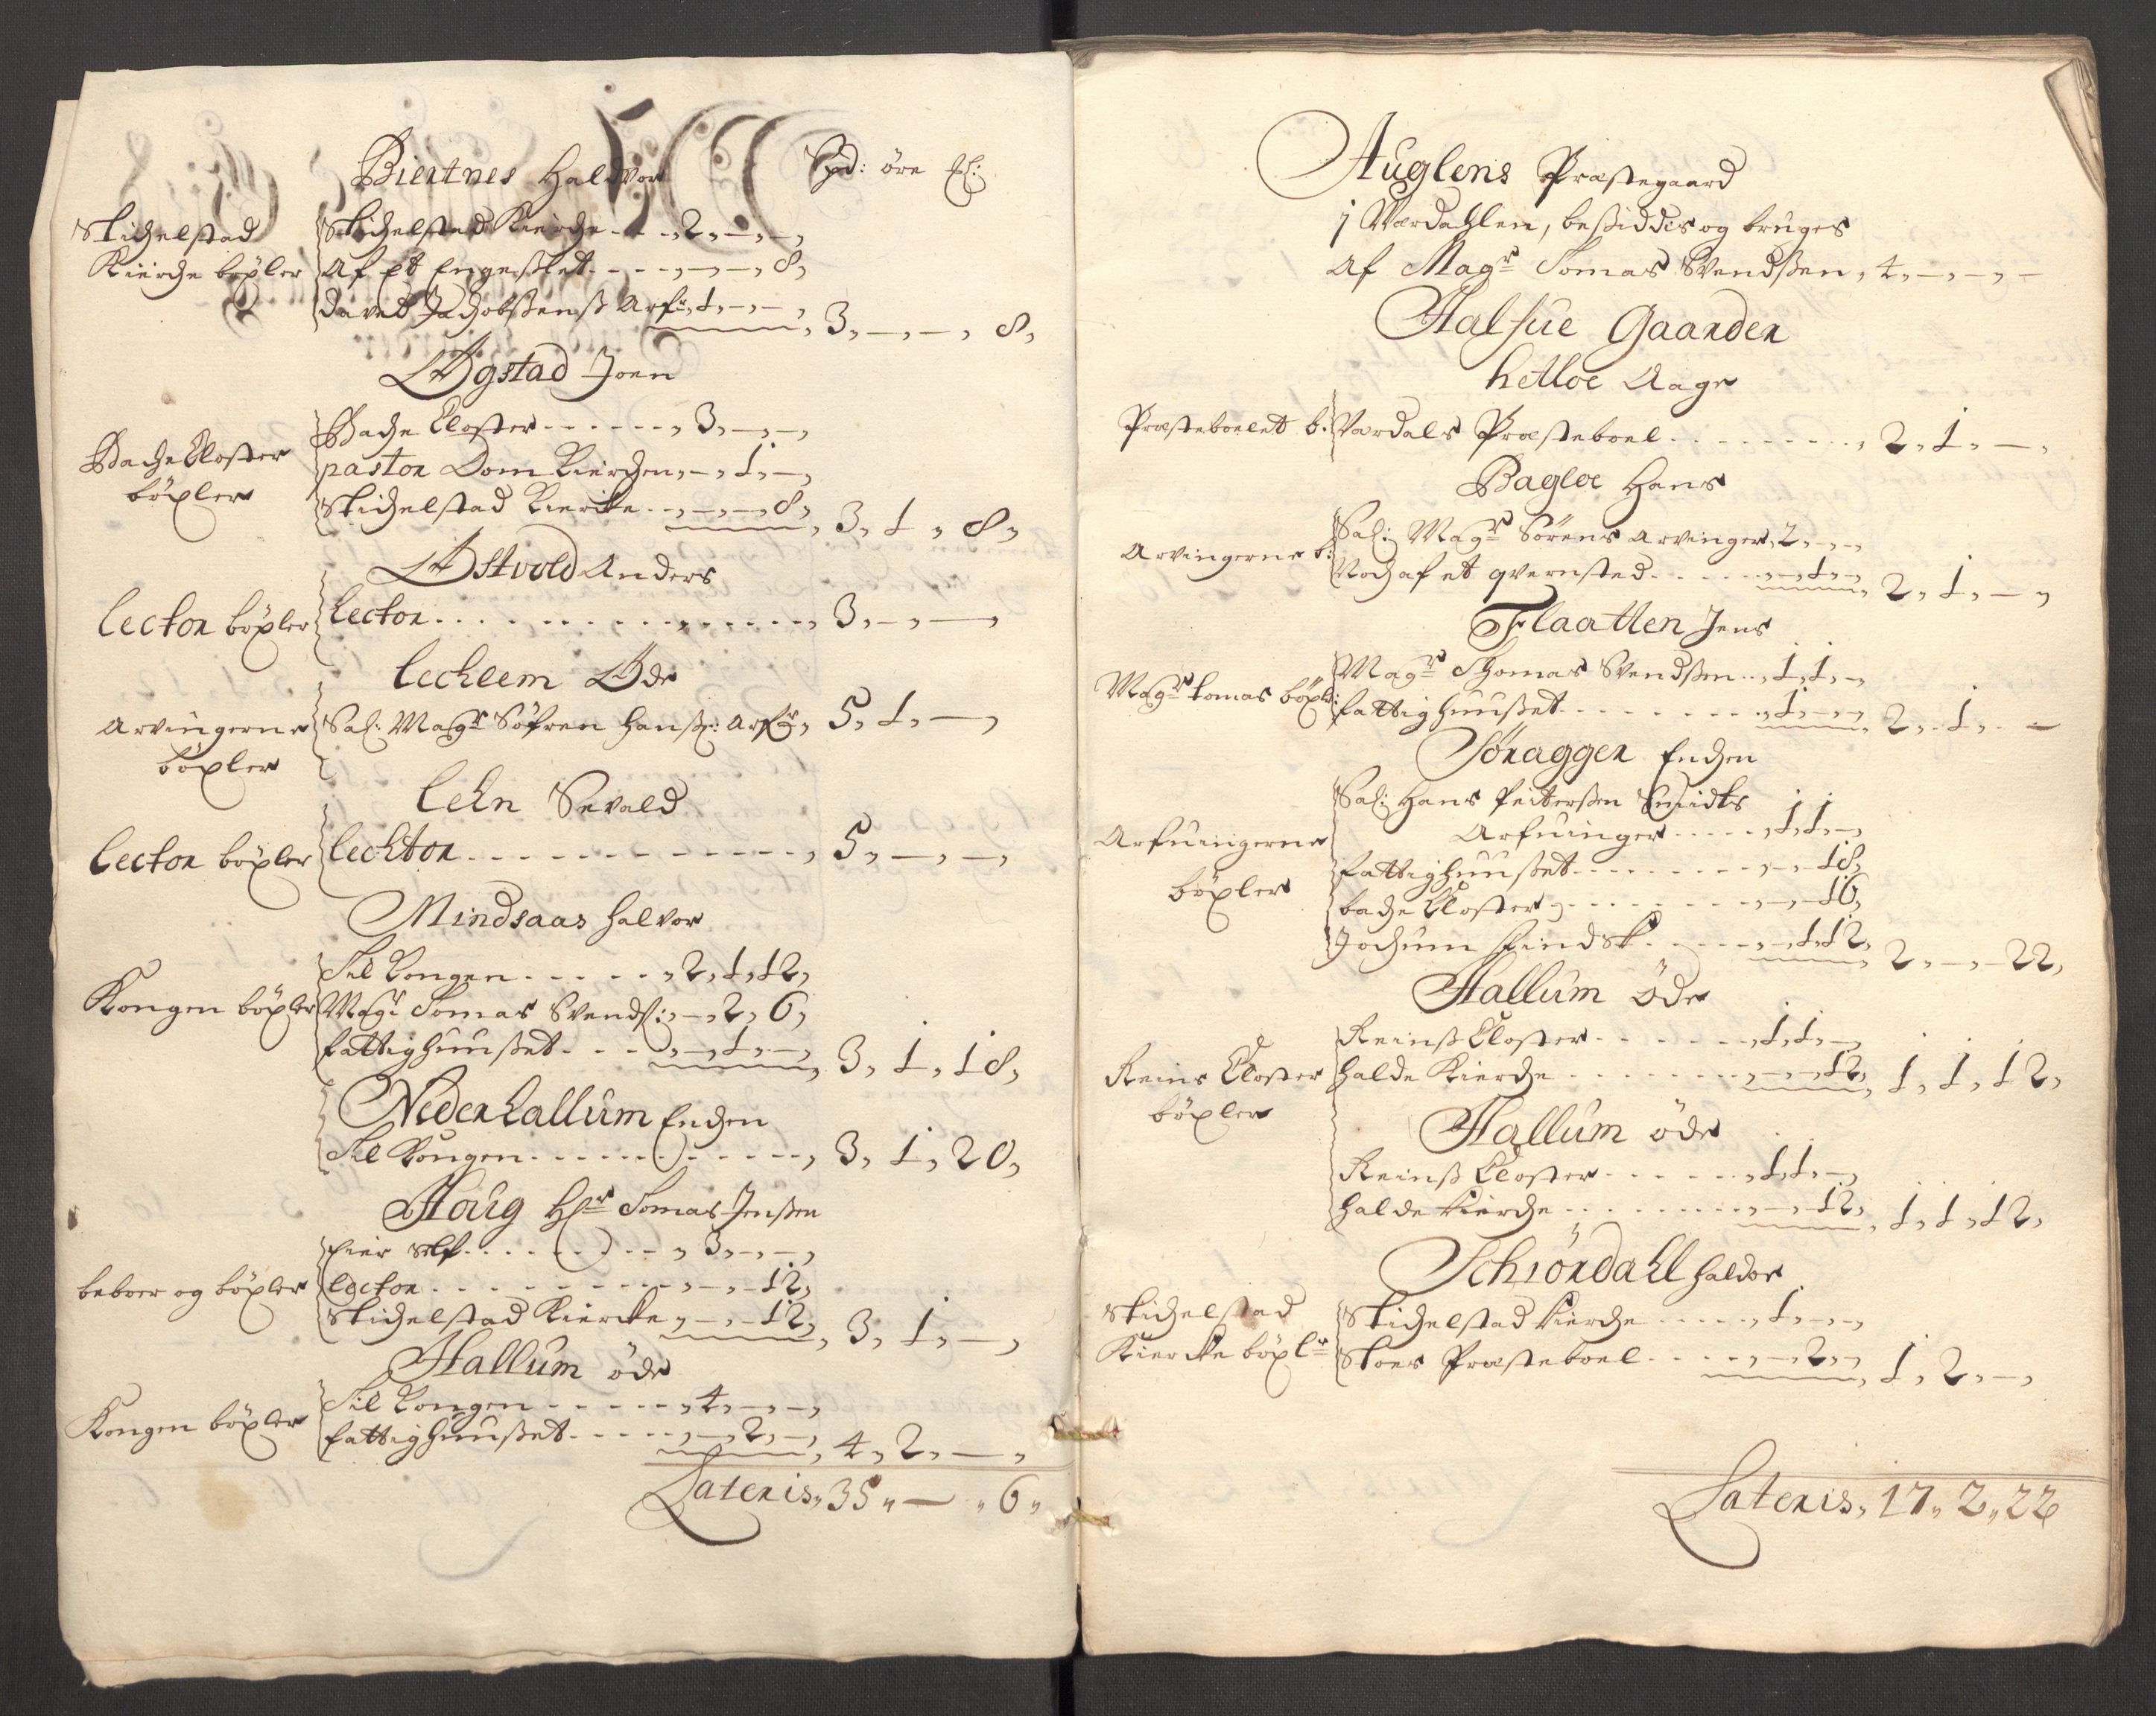 Biertnes Haldvor Spd: öre ħ:
Stichelstad
Kierche böxler
Stichelstad Kierche - - - „ 2„ — „ — „
Af et Engesßlet - - - - „ — „ — „ 8„
David Jachobsßenß Arf: „ 1„ — „ — „
3„ — „ — „ 8„
Øgstad Joen
Bache Closter
böxler
Bache Closter - - - - - - „ 3„ — „ — „
pastor Dom Kierchen „ — „ 1„ — „
Stichelstad Kiercke - „ — „ — „ 8„
3„ 1„ 8„
Østvold Anders
Lector böxler
Lector - - - - - - - - - - - „ 3„ — „ — „
Lechlem Øde
Arvingerne
böxler
Sal: Magr Söfren Hansß: Arfr: „ 5„ 1„ — „
Lehn Sevald
Lector böxler
Lechtor - - - - - - - - - - - „ 5„ — „ — „
Mindsaas Halvor
Kongen böxler
Til Kongen - - - - - „ 2„ 1„ 12„
Magr Tomas Svendß: „ — „ 2„ 6„
Fattighuusßet - - - „ — „ 1„ — „
3„ 1„ 18„
Nederhallum Enchen
Til Kongen - - - - - - - - - - „ 3„ 1„ 20„
Houg Hr Tomas Jensßen
beboer og böxler
Eier self - - - - - - - - „ 3„ — „ — „
Lector - - - - - - - - „ — „ — „ 12„
Stichelstad Kiercke „ — „ — „ 12„
3„ 1„ — „
Hallum öde
Kongen böxler
Til Kongen - - - - - „ 4„ — „ — „
Fattighuusßet - - - - „ — „ 2„ — „
4„ 2„ — „
Lateris „ 35„ — „ 6„
Auglens Præstegaard
j Værdahlen, besßiddes og bruges
Af Magr Tomas Svendsßen „ 4„ — „ — „ —
Halfue Gaarder
Hetloe Aage
Præsteboelet b.
Værdals Præsteboel - - - - - - - - „ 2„ 1„ — „
Bagloe Hans
Arvingerne b:
Sal: Magr Sörens Arvinger „ 2„ — „ —
Noch af et qvernsted - - - - - „ — „ 1„ — „
2„ 1„ — „
Flaatten Jens
Magr Tomas böxler:
Magr Thomas Svendsßen - - „ 1„ 1„ —
Fattighuusßet - - - - - - - - „ 1„ — „ —
2„ 1„ —
Söragger Enchen
Arfuingerne
böxler
Sal: Hans Peitersßen Smidts
Arfuinger - - - - - „ 1„ 1„ —
Fattighuusßet - - - - - - - - „ — „ — 18„
bache Closter - - - - - - - - „ — „ — 16„
Jochum - - - - „ — „ 1„ 12„
2„ — „ 22„
Hallum Öde
Reins Closter
böxler
Reinß Closter - - - - - - - „ 1„ 1„ —
Halde Kierche - - - - - - - - „ — „ — „ 12„
1„ 1„ 12„
Hallum öde
Reinß Closter - - - - - - - „ 1„ 1„ —
Halde Kierche - - - - - - - - „ — „ — „ 12„
1„ 1„ 12„
Schiördahl Haldor
Stichelstad
Kiercke böxlr
Stichelstad Kierche - - - - - „ 1„ — „ —
Stoer Præsteboel - - - - - „ — „ 2„ —
1„ 2„ — „
Lateris „ 17„ 2„ 22